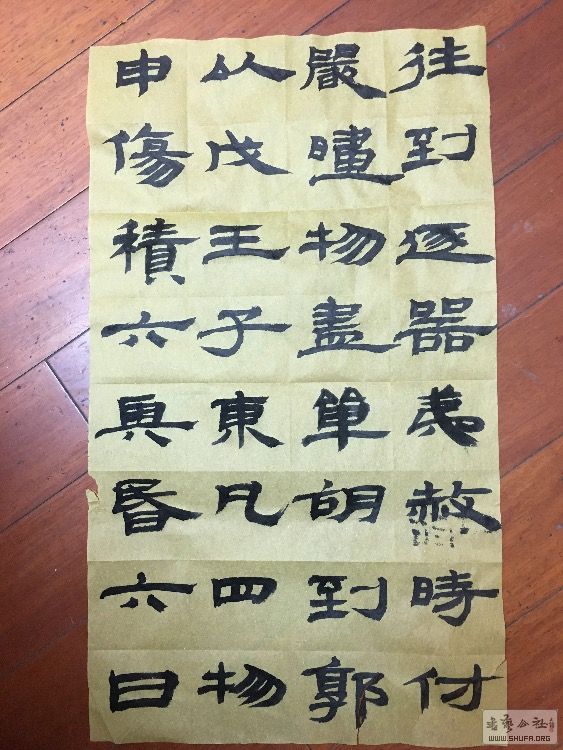 往到逐器赦時付
嚴物盡単胡到郭
以戊王子東凡四物
申傷積六昏六日
书艺公社
WWW.SHUFA.ORG